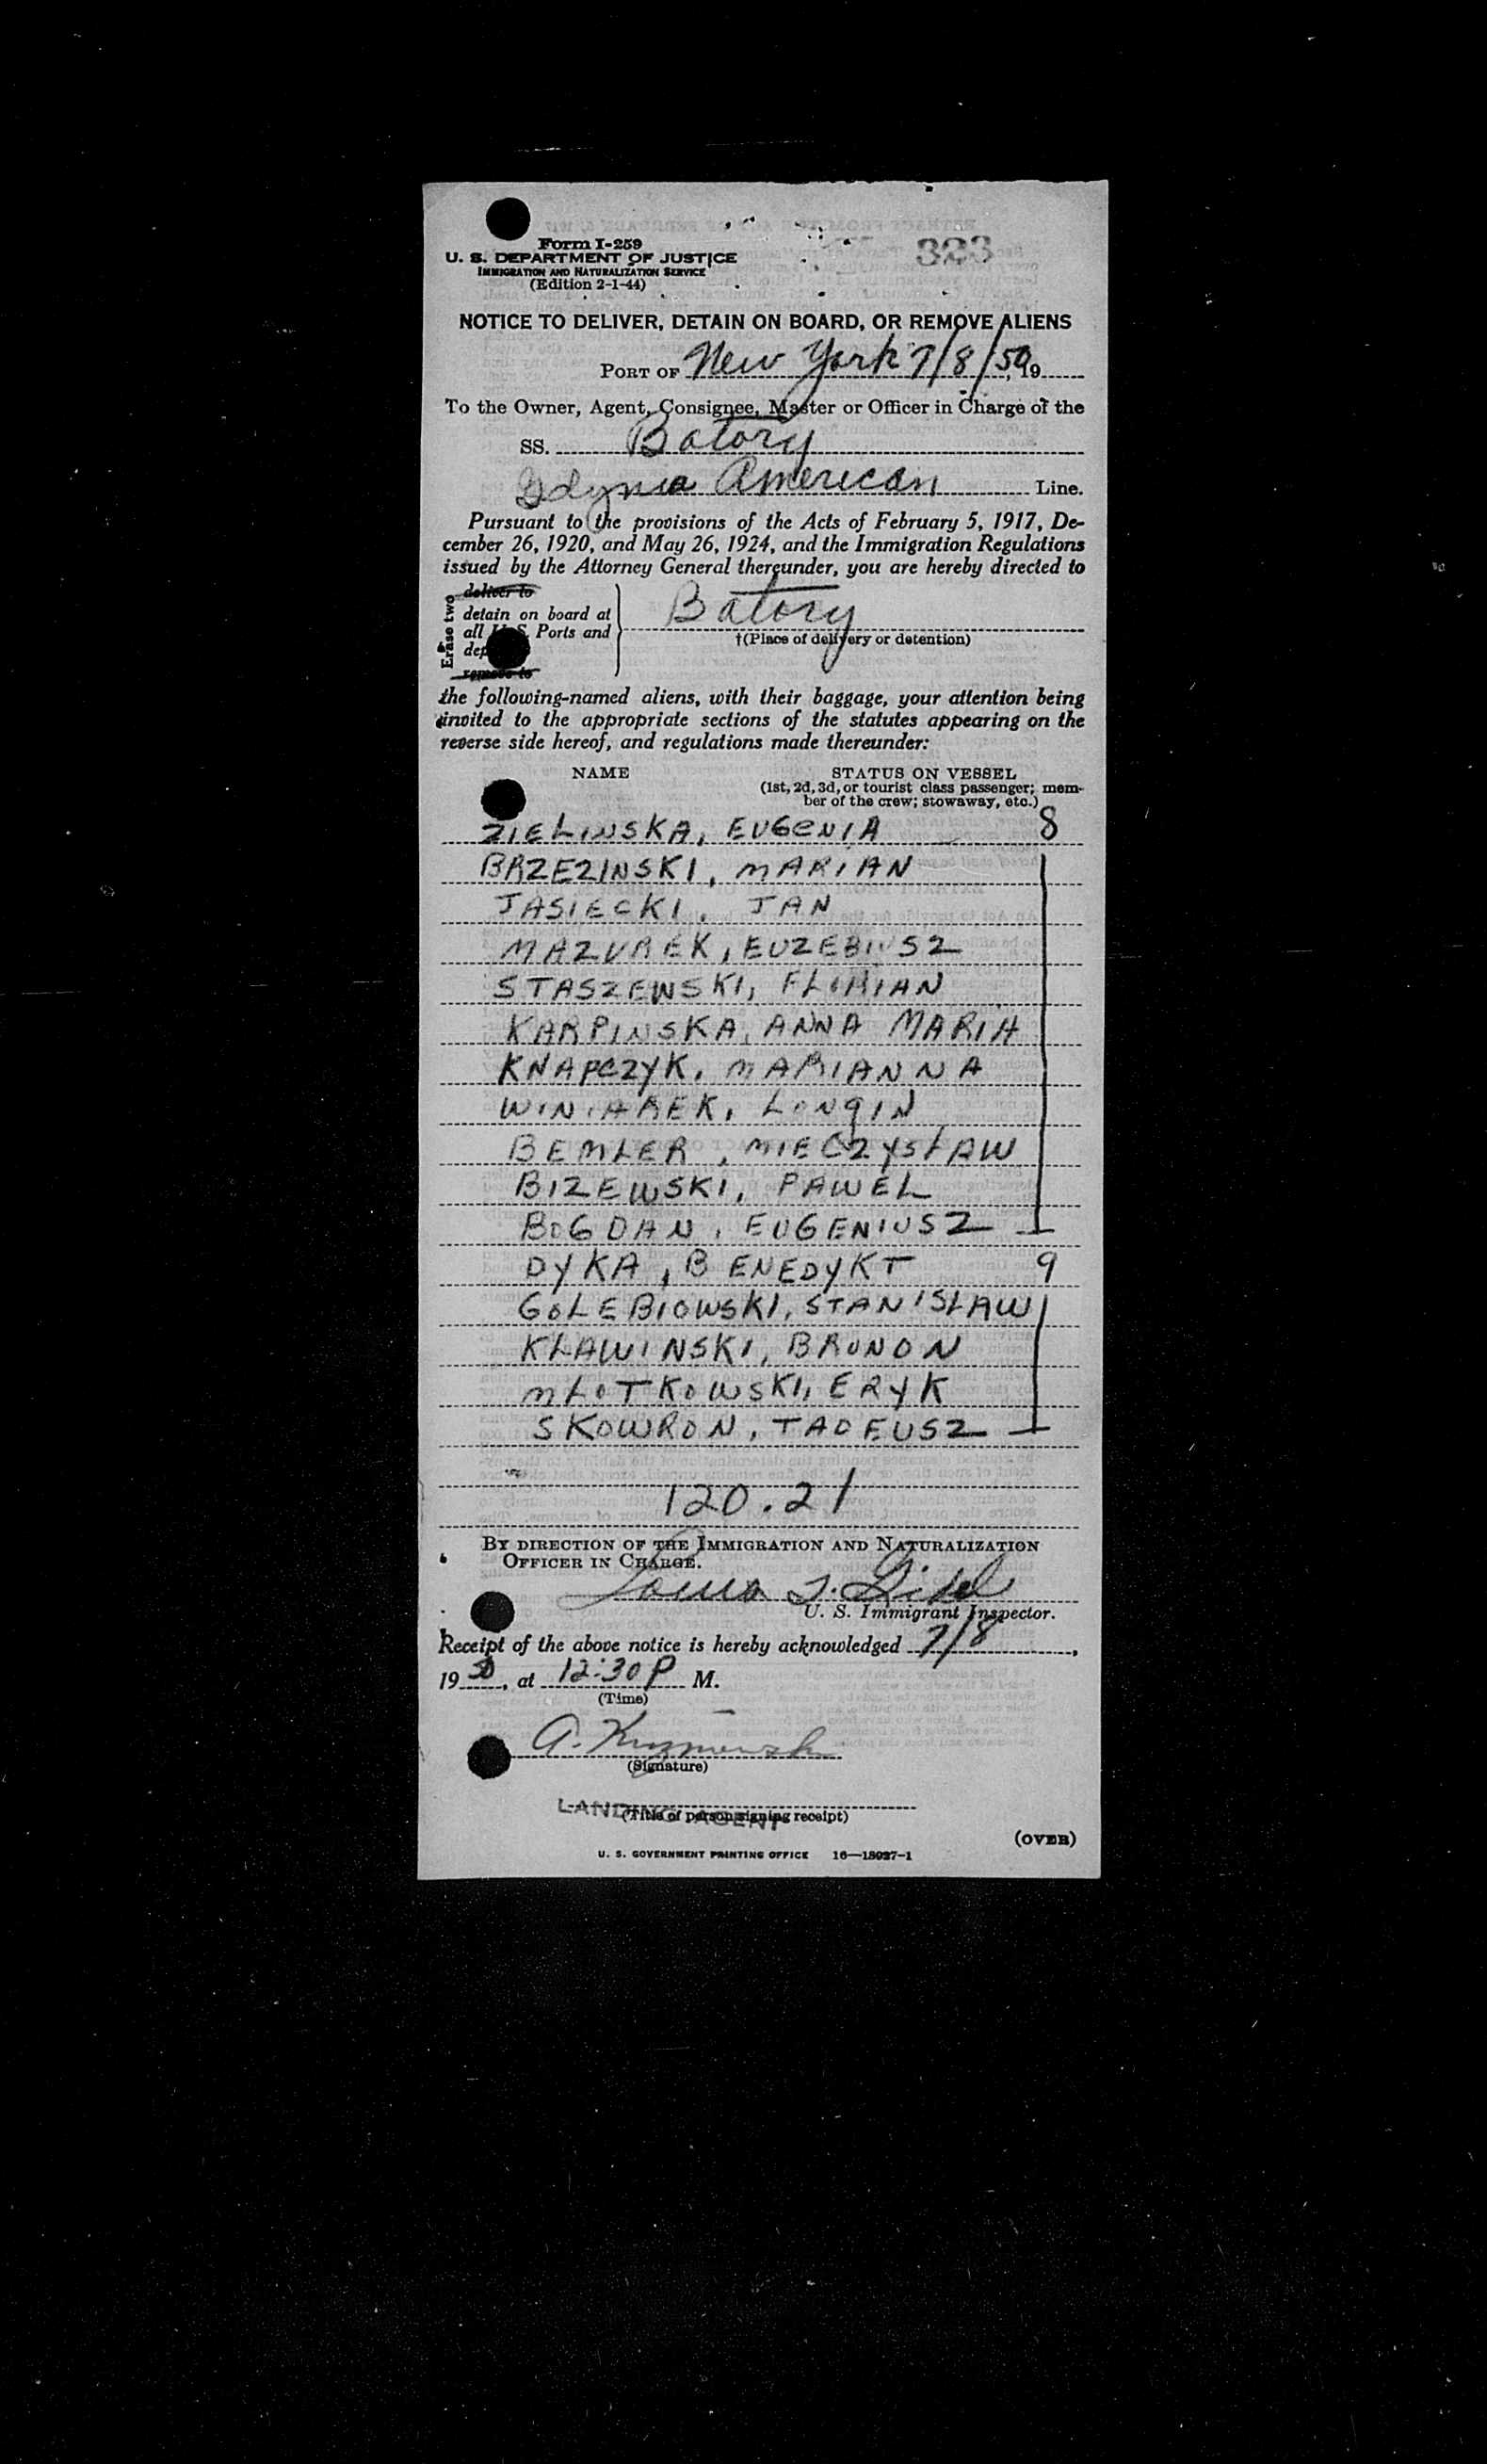 323
Form I-259
U. S. DEPARTMENT OF JUSTICE
IMMIGRATION AND NATURALIZATION SERVICE
(Edition 2-1-44)
NOTICE TO DELIVER, DETAIN ON BOARD, OR REMOVE ALIENS
PORT OF New York 7/8/50, 19
To the Owner, Agent, Consignee, Master or Officer in Charge of the
SS. Batory
Gdynia American Line.
Pursuant to the provisions of the Acts of February 5, 1917, De-
cember 26, 1920, and May 26, 1924, and the Immigration Regulations
issued by the Attorney General thereunder, you are hereby directed to
Erase two
deliver to
detain on board at
all U. S. Ports and
remove to
Batory
†(Place of delivery or detention)
the following-named aliens, with their baggage, your attention being
invited to the appropriate sections of the statutes appearing on the
reverse side hereof, and regulations made thereunder:
NAME STATUS ON VESSEL
(1st, 2d, 3d, or tourist class passenger; mem-
ber of the crew; stowaway, etc.)
ZIELINSKA, EUGENIA 8
BRZEZINSKI, MARIAN
JASIECKI, JAN
MAZUREK, EUZEBIUSZ
STASZEWSKI, FLORIAN
KARPINSKA, ANNA MARIA
KNAPCZYK, MARIANNA
WINIAREK, LONGIN
BEMLER, MIECZYSŁAW
BIZEWSKI, PAWEL
BOGDAN, EUGENIUSZ
DYKA, BENEDYKT 9
GOLEBIOWSKI, STANISŁAW
KŁAWINSKI, BRUNON
MŁOTKOWSKI, ERYK
SKOWRON, TADEUSZ
120.21
BY DIRECTION OF THE IMMIGRATION AND NATURALIZATION
OFFICER IN CHARGE.
U. S. Immigrant Inspector.
Receipt of the above notice is hereby acknowledged 7/8,
1950, at 12:30 P M.
(Time)
A.
(Signature)
LANDING AGENT
(Title of person signing receipt)
(OVER)
U. S. GOVERNMENT PRINTING OFFICE 16—18027-1